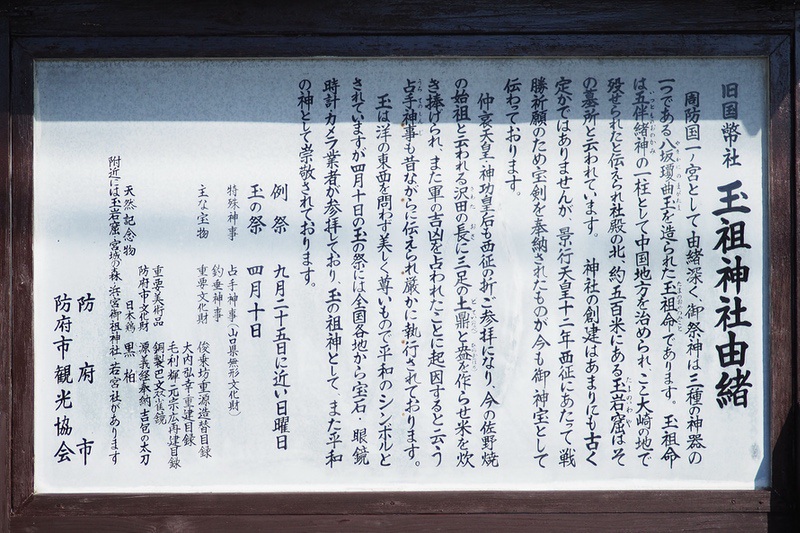 旧国幣社 玉祖神社由緒
周防国一ノ宮として由緒深く、御祭神は三種の神器の
一つである八坂瓊曲玉を造られた玉祖命であります。玉祖命
は五伴緒神の一柱として中国地方を治められ、こと大崎の地で
歿せられたと伝えられ社殿の北、約五百米にある玉岩窟はそ
の墓所と云われています。 神社の創建はあまりにも古く
定かではありませんが、景行天皇十二年西征にあたって戦
勝祈願のため宝剣を奉納されたものが今も御神宝として
伝わっております。
仲哀天皇・神功皇后も西征の折ご参拝になり、今の佐野焼
の始祖と云われる沢田の長に三足の土鼎と壺を作らせ米を炊
き捧げられ、また軍の吉凶を占われたことに起因すると云う
占手神事も昔ながらに伝えられ厳かに執行されております。
玉は洋の東西を問わず美しく尊いもので平和のシンボルと
されていますが四月十日の玉の祭には全国各地から宝石・眼鏡
時計カメラ業者が参拝しており、玉の祖神として、また平和
の神として崇敬されております。
例祭 九月二十五日に近い日曜日
玉の祭 四月十日
特殊神事 占手神事(山口県無形文化財)
釣垂神事
主な宝物 重要文化財 俊乗坊重源造替目録
大内弘幸重建目録
毛利輝元宗広再建目録
重要美術品 銅製巴文雀鏡
防府市文化財 源義経奉納吉包の太刀
天然記念物 日本鶏 黒柏
附近には玉岩窟、宮城の森、浜宮御祖神社、若宮社があります
防府市
防府市観光協会